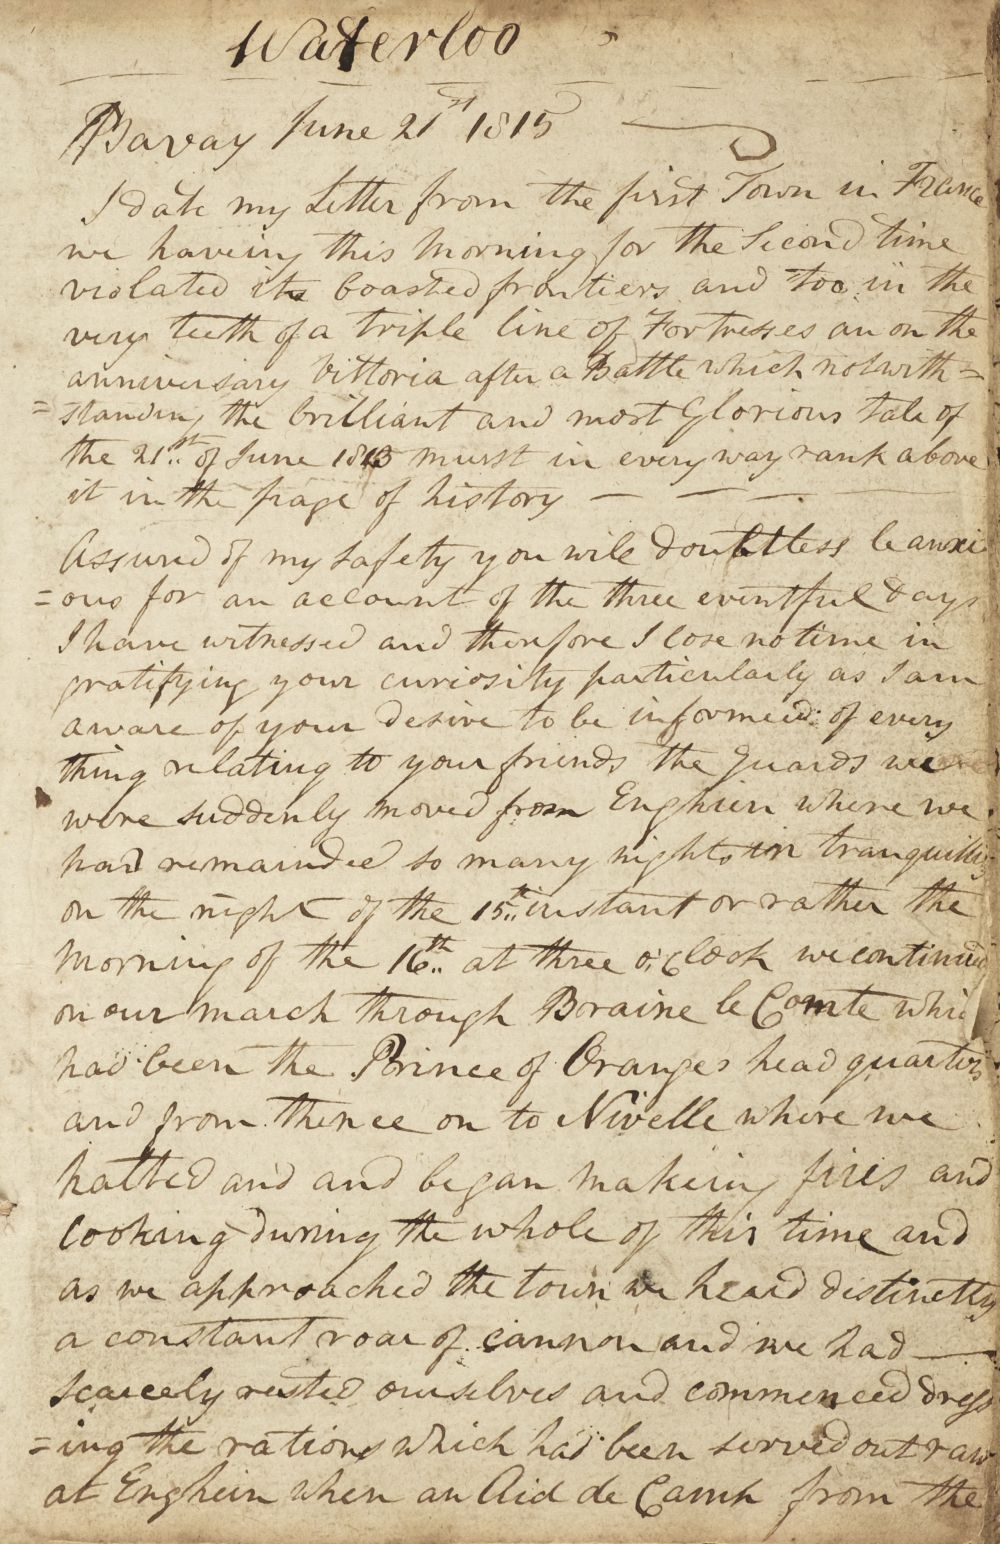 Waterloo
Bavay June 21st 1815
I date my Letter from the first Town in France
we haveing this Morning for the Second time
violated its boasted frontiers and too in the
very teeth of a triple line of Fortresses an on the
anniversary Vittoria after a Battle which notwith=
=standing the brilliant and most Glorious tale of
the 21st of June 1813 must in every way rank above
it in the page of history — — —
Assured of my safety you will doubtless be anxi
=ous for an account of the three eventful days
I have witnessed and therefore I lose no time in
gratifying your curiosity particularly as I am
aware of your desire to be informed of every
thing relating to your friends the Guards we
were suddenly moved from Enghien where we
had remainded so many nights in tranquillity
on the night of the 15th instant or rather the
Morning of the 16th at three o,Clock we continued
on our march through Braine le Comte which
had been the Prince of Oranges head quarters
and from thence on to Nivelle where we
halted and and began makeing fires and
Cooking during the whole of this time and
as we approached the town we heard distinctly
a constant roar of cannon and we had —
scarcely rested ourselves and commenced dress
=ing the rations which had been served out raw
at Enghein when an Aid de Camp from the